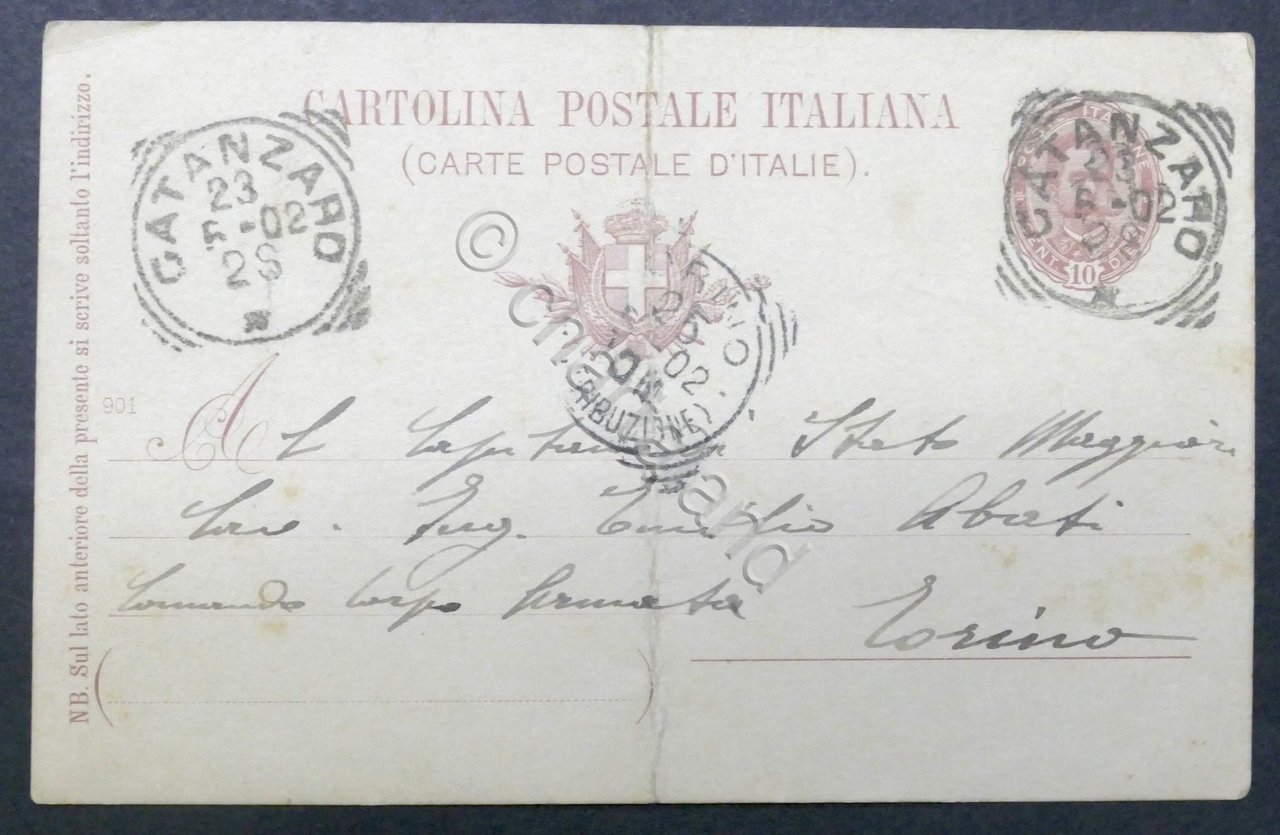 CARTOLINA POSTALE ITALIANA
(CARTE POSTALE D'ITALIE).
NB. Sul lato anteriore della presente si scrive soltanto l'indirizzo.
CATANZARO
23
5-02
2S
CATANZARO
23
5-02
10
TORINO
02
(DISTRIBUZIONE)
901
Al Capitano Stato Maggiore
Cav. Ing. Emilio Abati
Comando Corpo Armata
Torino
©